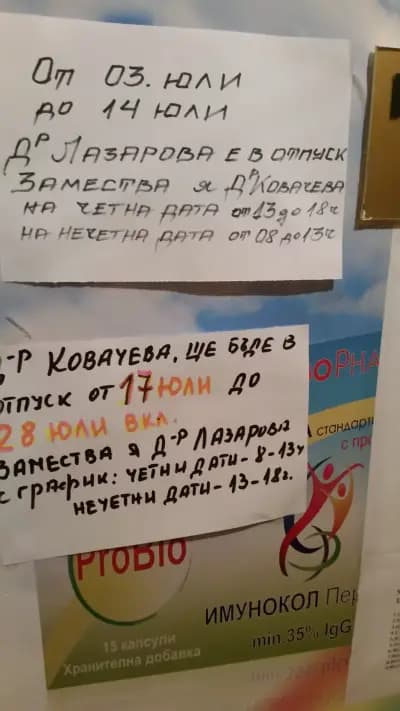 От 03. юли
до 14 юли
Др Лазарова е в отпуск
Замества я Др Ковачева
на четна дата от 13 до 18ч
на нечетна дата от 08 до 13ч
Д-р Ковачева, ще бъде в
отпуск от 17 юли до
28 юли вкл.
Замества я Д-р Лазарова
с график: четни дати - 8-13ч
нечетни дати - 13-18г.
стандарти
с про
ProBio
ИМУНОКОЛ Пер
min.35% IgG
15 капсули
Хранителна добавка